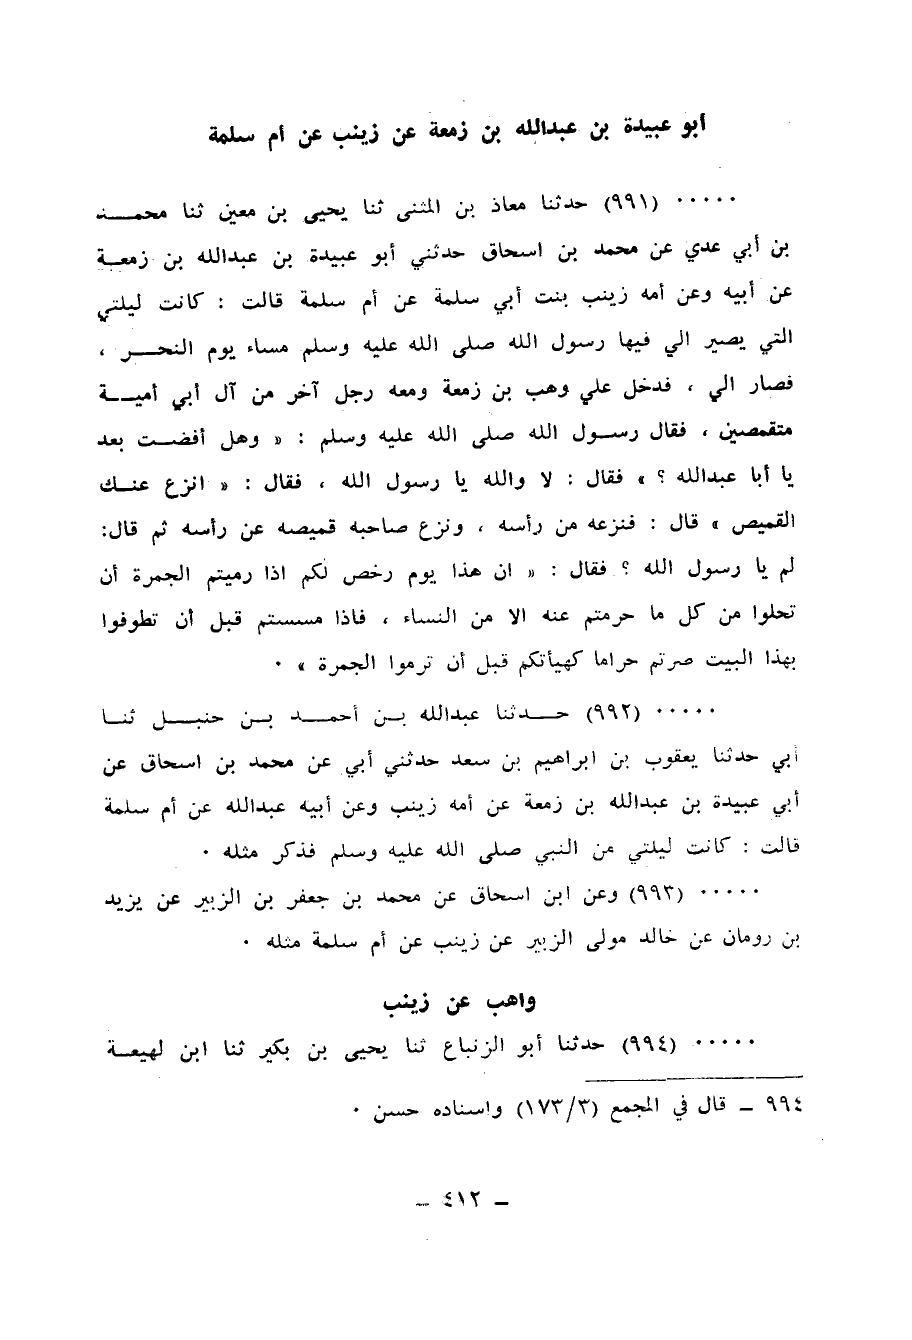 أبو عبيدة بن عبدالله بن زمعة عن زينب عن أم سلمة
٠٠٠٠٠ (٩٩١) حدثنا معاذ بن المثنى ثنا يحيى بن معين ثنا محمد
بن أبي عدي عن محمد بن اسحاق حدثني أبو عبيدة بن عبدالله بن زمعة
عن أبيه وعن أمه زينب بنت أبي سلمة عن أم سلمة قالت : كانت ليلتي
التي يصير الي فيها رسول الله صلى الله عليه وسلم مساء يوم النحر ،
فصار الي ، فدخل علي وهب بن زمعة ومعه رجل آخر من آل أبي أمية
متقمصين ، فقال رسول الله صلى الله عليه وسلم : « وهل أفضت بعد
يا أبا عبدالله ؟ » فقال : لا والله يا رسول الله ، فقال : « انزع عنك
القميص » قال : فنزعه من رأسه ، ونزع صاحبه قميصه عن رأسه ثم قال:
لم يا رسول الله ؟ فقال : « ان هذا يوم رخص لكم اذا رميتم الجمرة أن
تحلوا من كل ما حرمتم عنه الا من النساء ، فاذا مسستم قبل أن تطوفوا
بهذا البيت صرتم حراما كهيأتكم قبل أن ترموا الجمرة » ٠
٠٠٠٠٠ (٩٩٢) حدثنا عبدالله بن أحمد بن حنبل ثنا
أبي حدثنا يعقوب بن ابراهيم بن سعد حدثني أبي عن محمد بن اسحاق عن
أبي عبيدة بن عبدالله بن زمعة عن أمه زينب وعن أبيه عبدالله عن أم سلمة
قالت : كانت ليلتي من النبي صلى الله عليه وسلم فذكر مثله ٠
٠٠٠٠٠ (٩٩٣) وعن ابن اسحاق عن محمد بن جعفر بن الزبير عن يزيد
بن رومان عن خالد مولى الزبير عن زينب عن أم سلمة مثله ٠
واهب عن زينب
٠٠٠٠٠ (٩٩٤) حدثنا أبو الزنباع ثنا يحيى بن بكير ثنا ابن لهيعة
٩٩٤ ـ قال في المجمع (١٧٣/٣) واسناده حسن ٠
ـ ٤١٢ ـ